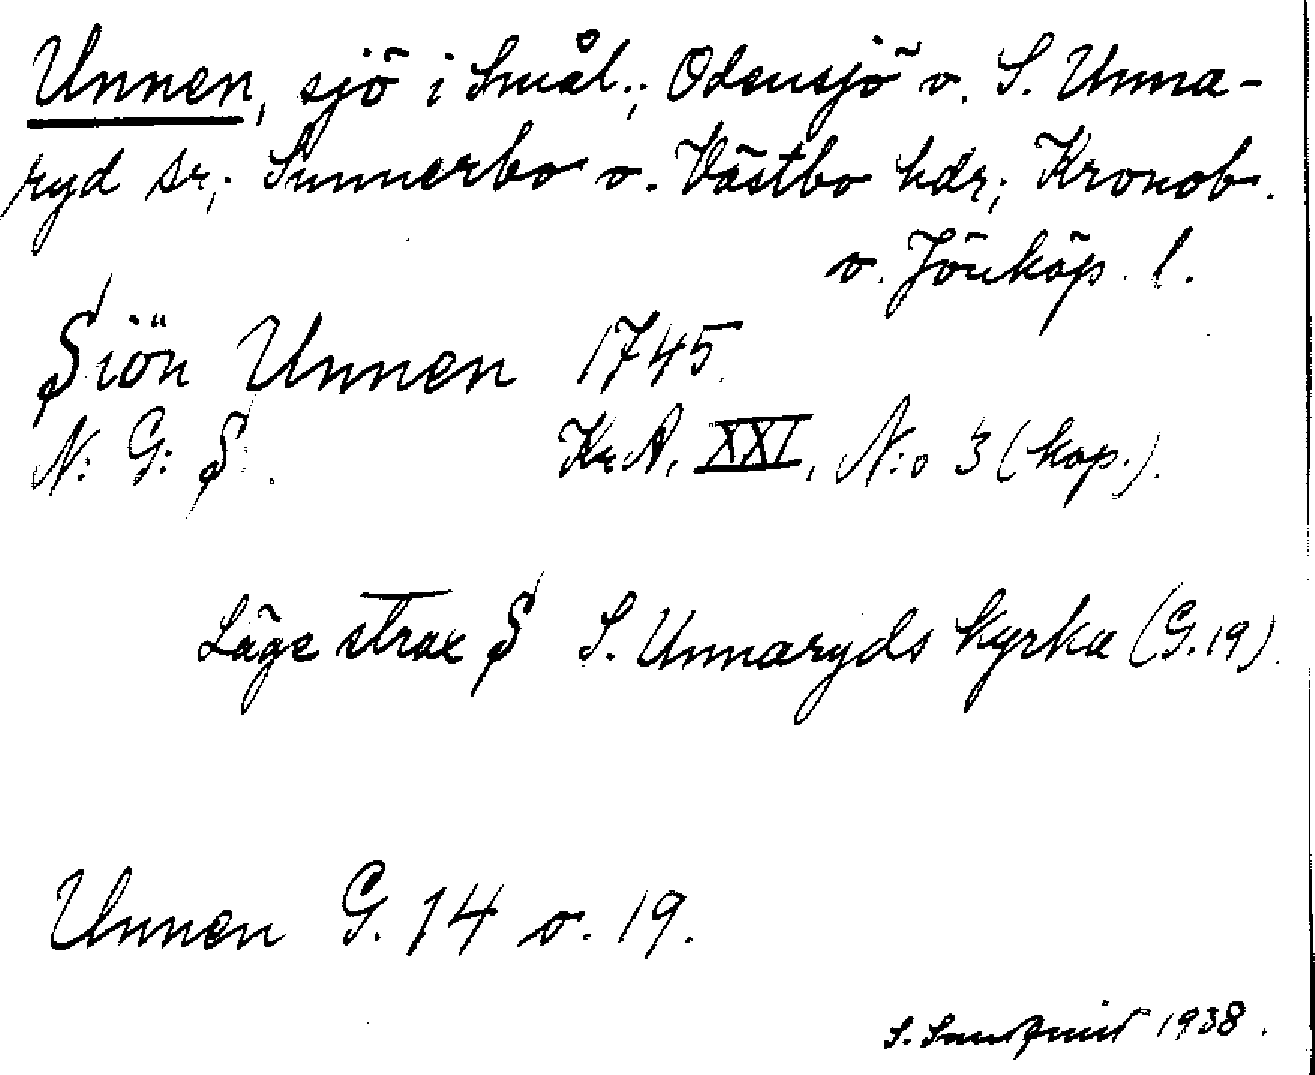 Unnen, sjö i Smål.; Odensjö o. S. Unna-
ryd sr; Sunnerbo o. Västbo hdr; Kronob.
o. Jönköp. l.
Siön Unnen 1745.
N: G: S: . Kr.A. XXI, N:o 3 (kop.).
Läge strax S S. Unnaryds kyrka (G.19).
Unnen G. 14 o. 19.
S. 1938.